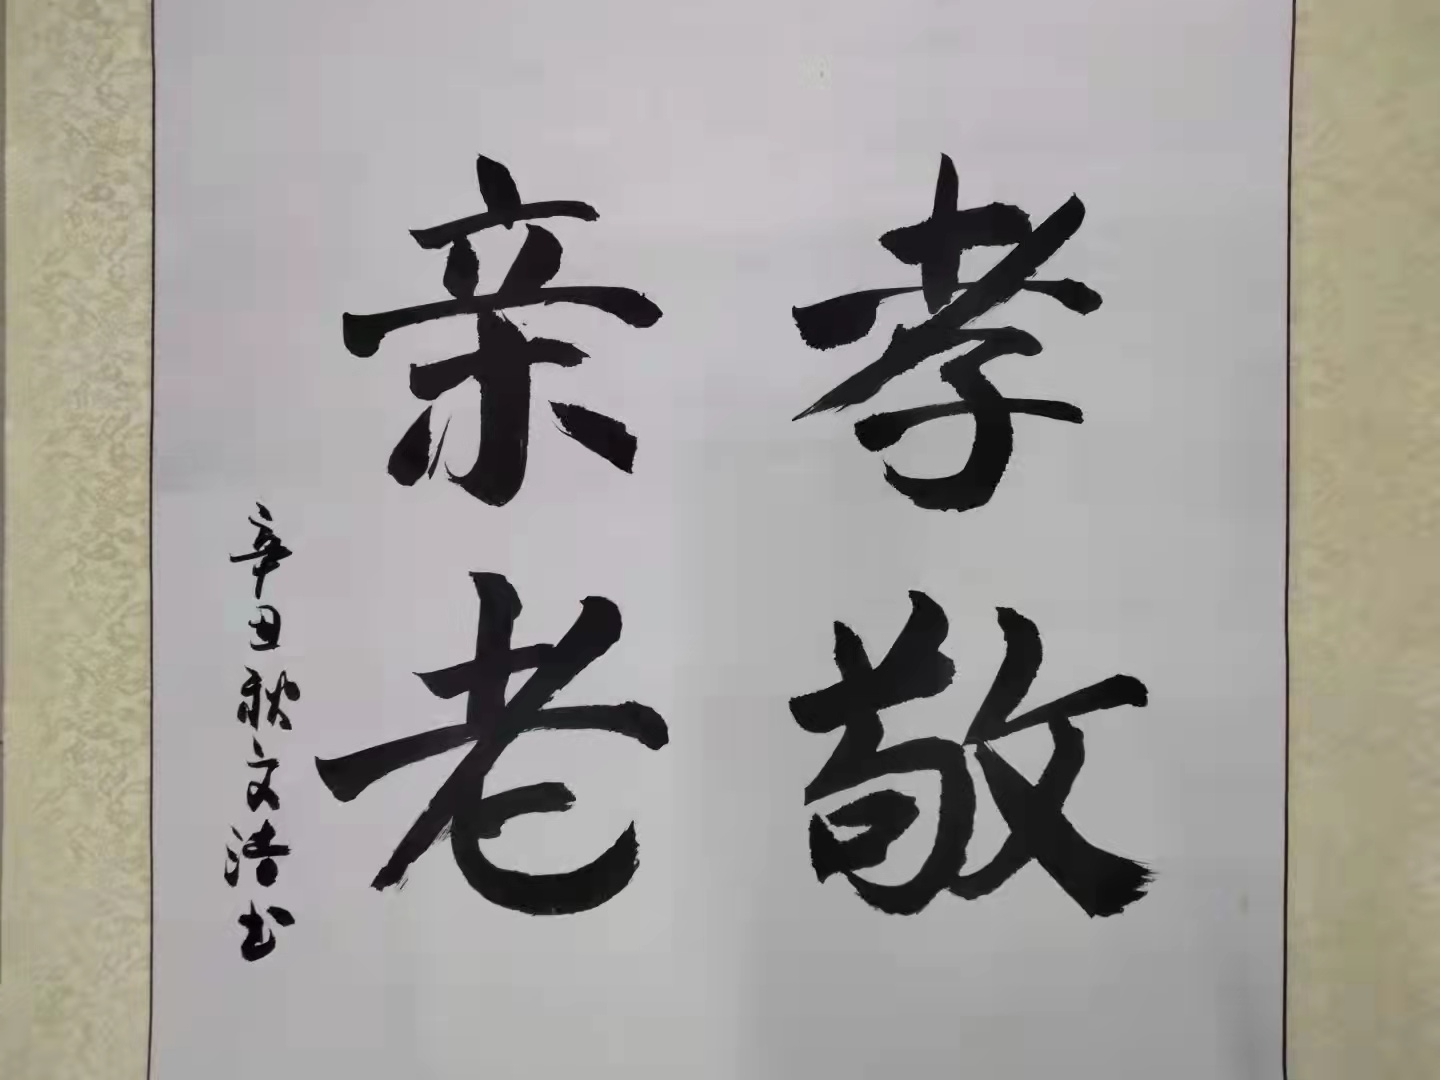 孝敬
亲老
辛丑秋文浩书